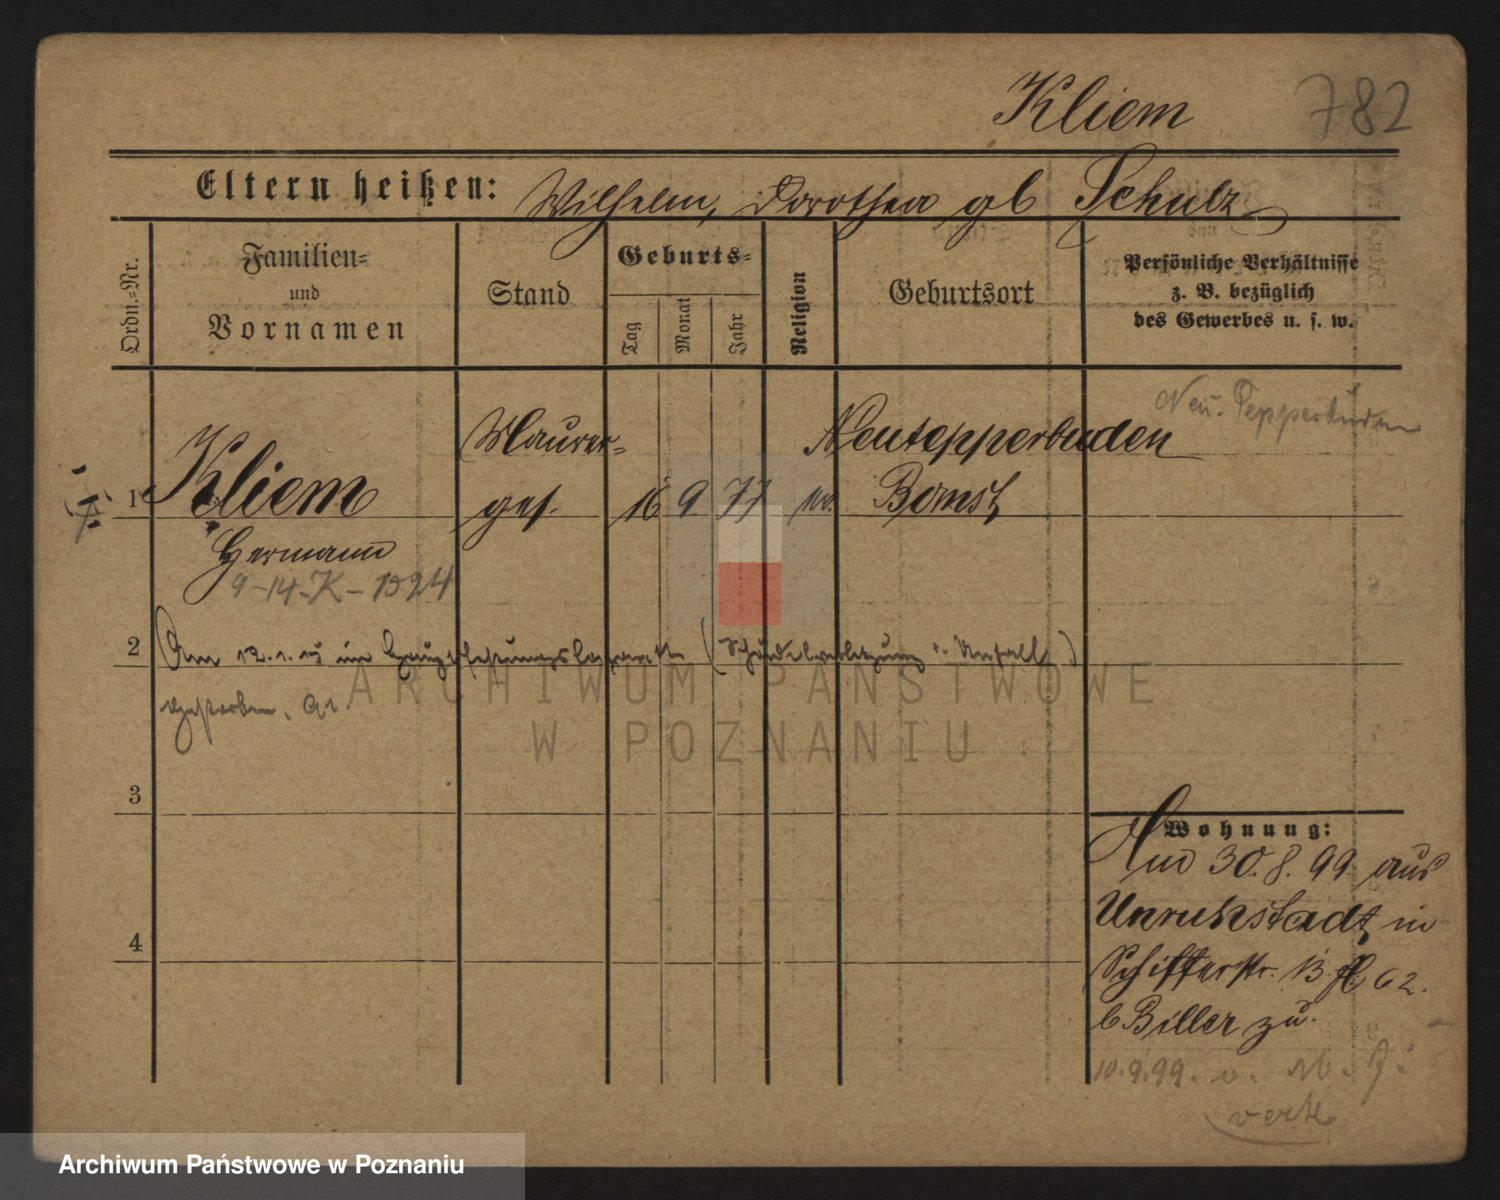 Kliem 782
Eltern heißen: Wilhelm, Dorothea gb Schulz
Ordn.-Nr.
Familien-
und
Vornamen
Stand
Geburts-
Tag
Monat
Jahr
Religion
Geburtsort
Persönliche Verhältnisse
z. B. bezüglich
des Gewerbes u. s. w.
Neu-Tepperbuden
Maurer- Neutepperbuden
1 Kliem ges. 16 9. 77 ev. Bomst
Hermann
9-14-K-1324
2 Am 12.1.15 im (Schädelverletzung Unfall)
verstorben.
3
4
Wohnung:
Am 30.8.99 aus
Unruhstadt in
Schifferstr. 13 62.
b Biller zu.
10.9.99. v.
verh.
ARCHIWUM PAŃSTWOWE
W POZNANIU
Archiwum Państwowe w Poznaniu